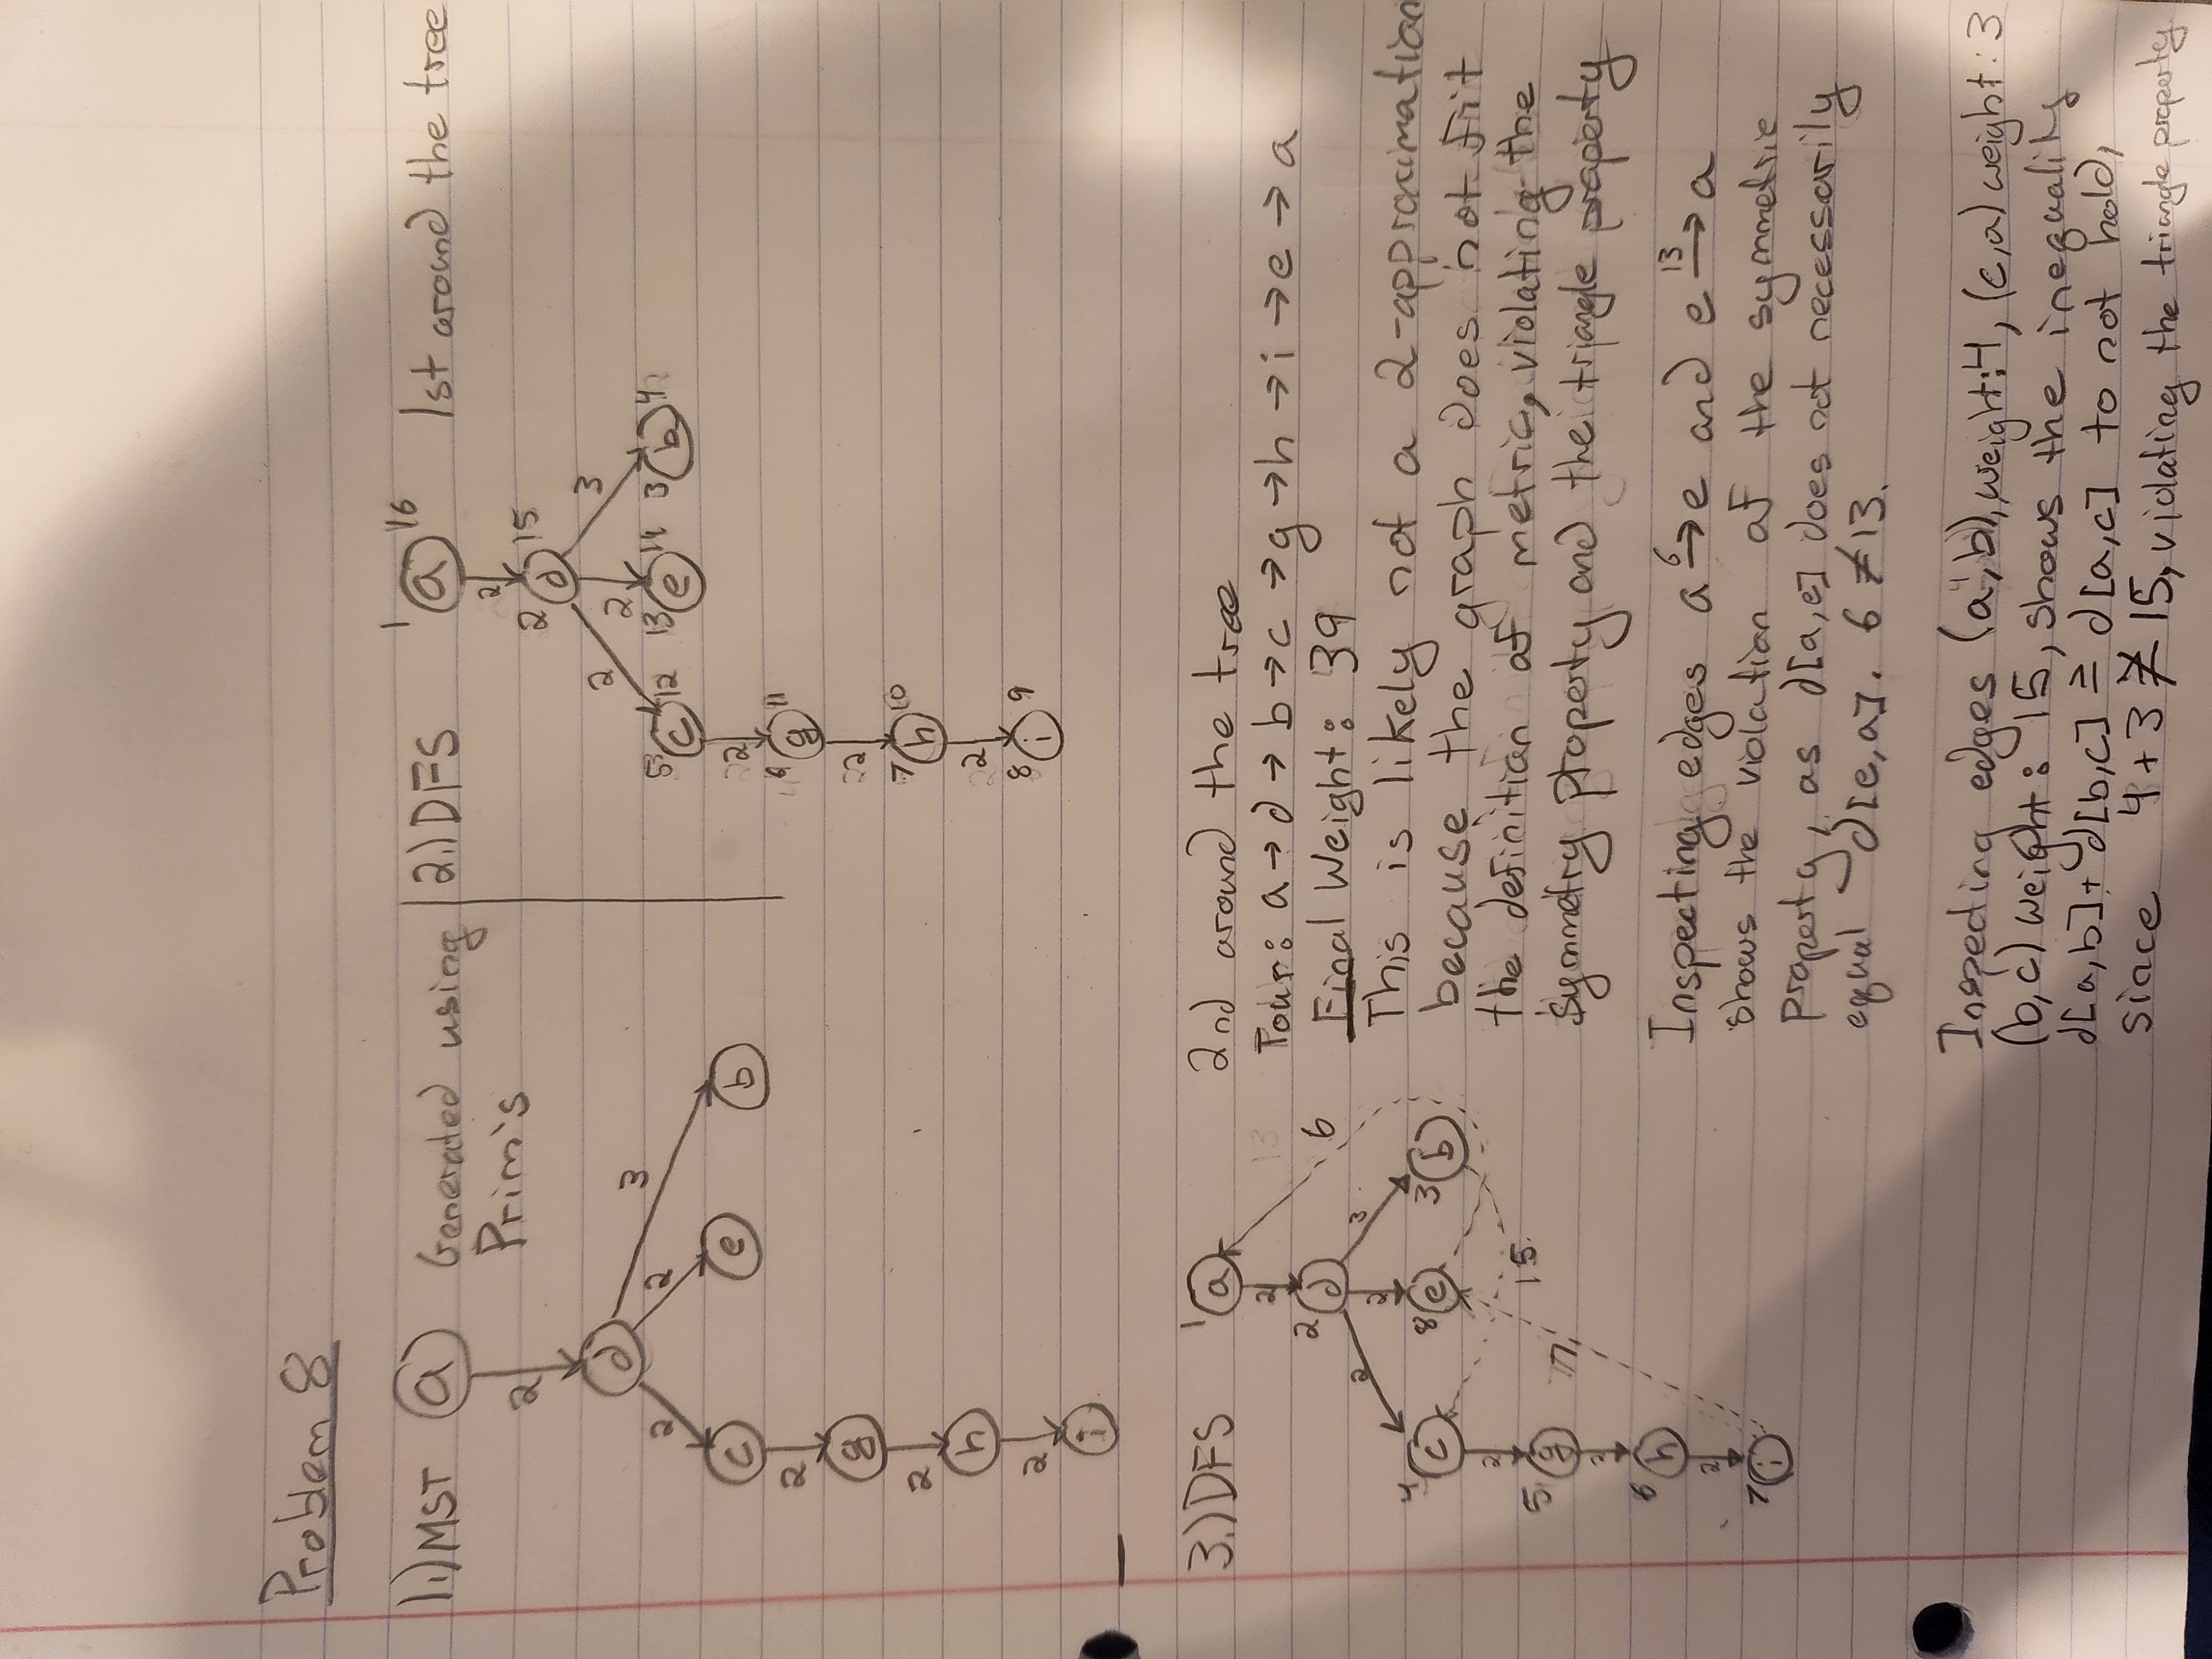 Problem 8
1.) MST
Generated using
Prim's
a
2
d
2
2
3
c
e
b
2
g
2
h
2
i
2.) DFS
1st around the tree
1 a 16
2
2 d 15
2
2
3
5 c 12
13 e 14
3 b 4
2
6 g 11
2
7 h 10
2
8 i 9
3.) DFS
2nd around the tree
1 a
2
6
2 d
2
2
3
4 c
8 e
3 b
2
15
5 g
17
2
6 h
2
7 i
Tour: a → d → b → c → g → h → i → e → a
Final Weight: 39
This is likely not a 2-approximation
because the graph does not fit
the definition of metric, violating the
symmetry property and the triangle property
Inspecting edges a 6→ e and e 13→ a
shows the violation of the symmetric
property, as d[a,e] does not necessarily
equal d[e,a]. 6 ≠ 13.
Inspecting edges (a,b), weight: 4, (c,a) weight: 3
(b,c) weight: 15, shows the inequality
d[a,b] + d[b,c] ≥ d[a,c] to not hold,
since 4 + 3 ≱ 15, violating the triangle property